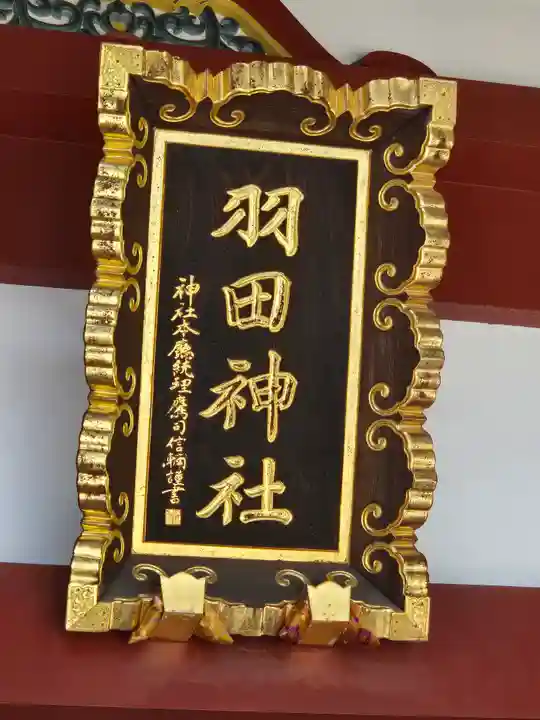 羽田神社
神社本廳統理鷹司信輔謹書